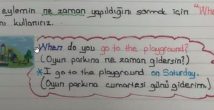 eylemin ne zaman yapıldığını sormak için "Whe
nı kullanırız.
When do you go to the playground?
(Oyun parkına ne zaman gidersin?)
*I go to the playground on Saturday.
(Oyun parkına cumartesi günü giderim.)